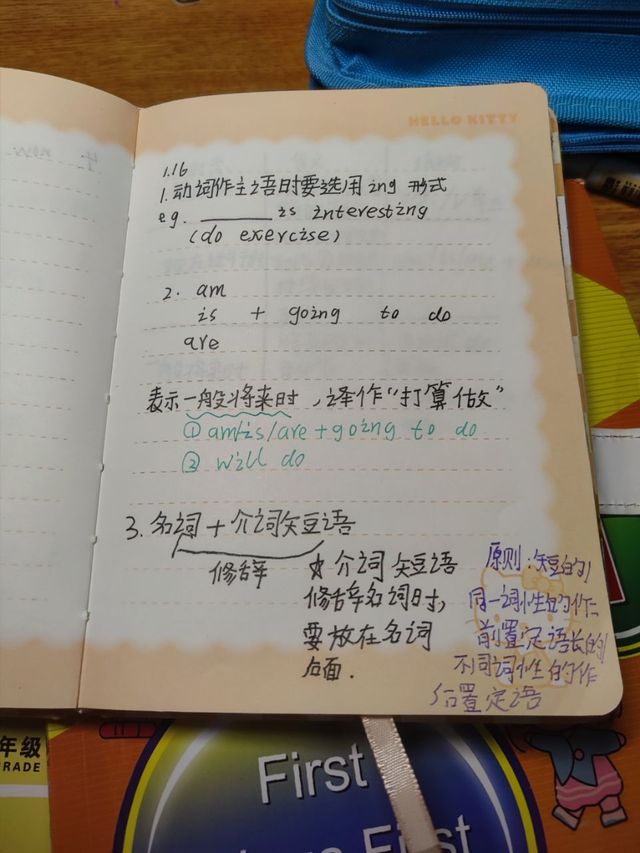 HELLO KITTY
1.16
1.动词作主语时要选用 ing 形式
eg. ________ is interesting
(do exercise)
2. am
is + going to do
are
表示一般将来时，译作“打算做”
① am/is/are + going to do
② will do
3. 名词 + 介词短语
修辞
☆ 介词短语
修辞名词时，
要放在名词
后面.
原则：短的/
同一词性的作
前置定语长的/
不同词性的作
后置定语
年级
GRADE
First
First